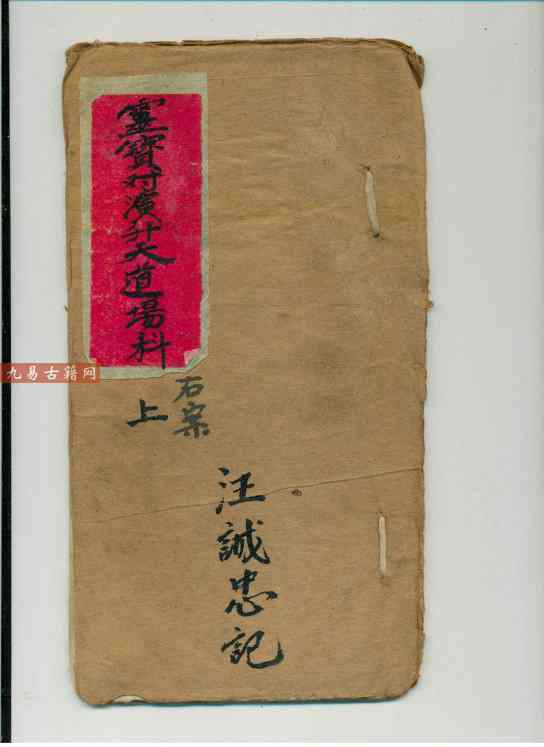 靈寶付演升大道場科
上
石案
汪誠忠記
九易古籍网